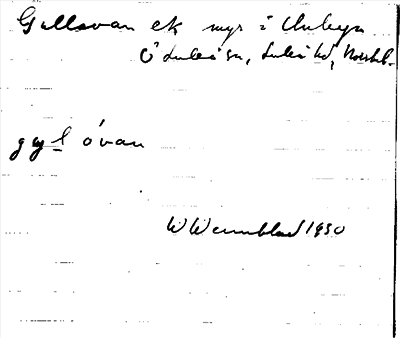 Gullavan ek myr i Unbyn
Ö Luleå sn, Luleå hd, Norrb.
gyl óvan
W Wennblad 1930